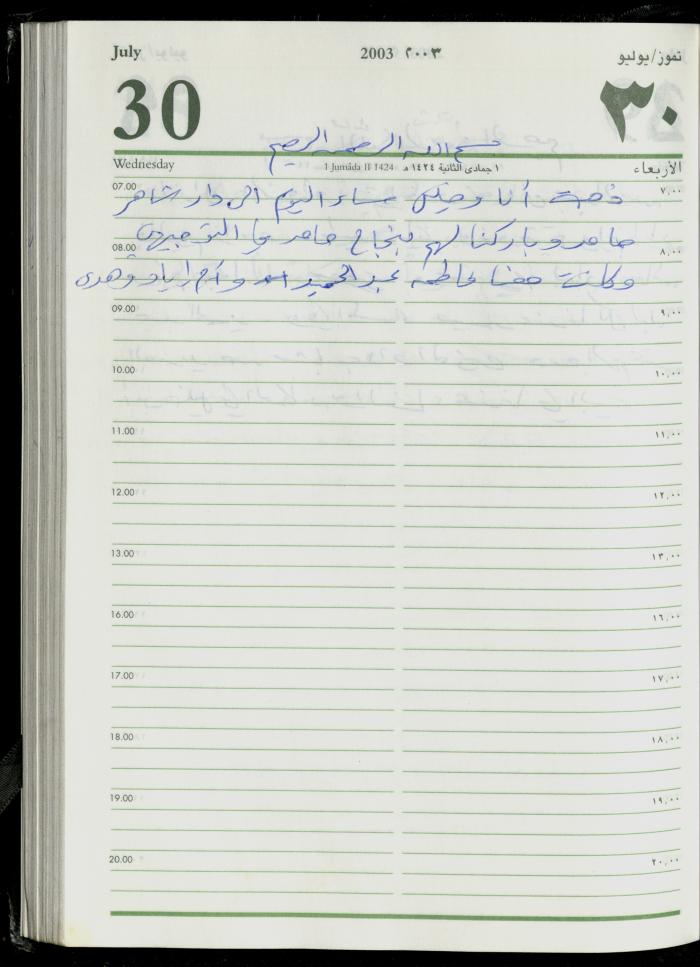 July 2003 ٢٠٠٣ تموز/يوليو
30 ٣٠
بسم الله الرحمن الرحيم
Wednesday 1 Jumâda II 1424 ١ جمادى الثانية ١٤٢٤ هـ الأربعاء
07.00 ٧,٠٠
ذهبت أنا وخليل مساء اليوم الى دار شاهر
حامد وباركنا لهم بنجاح حامد في التوجيهي
08.00 ٨,٠٠
وكانت معنا فاطمه عبد الحميد وأم زياد وهدى
09.00 ٩,٠٠
10.00 ١٠,٠٠
11.00 ١١,٠٠
12.00 ١٢,٠٠
13.00 ١٣,٠٠
16.00 ١٦,٠٠
17.00 ١٧,٠٠
18.00 ١٨,٠٠
19.00 ١٩,٠٠
20.00 ٢٠,٠٠